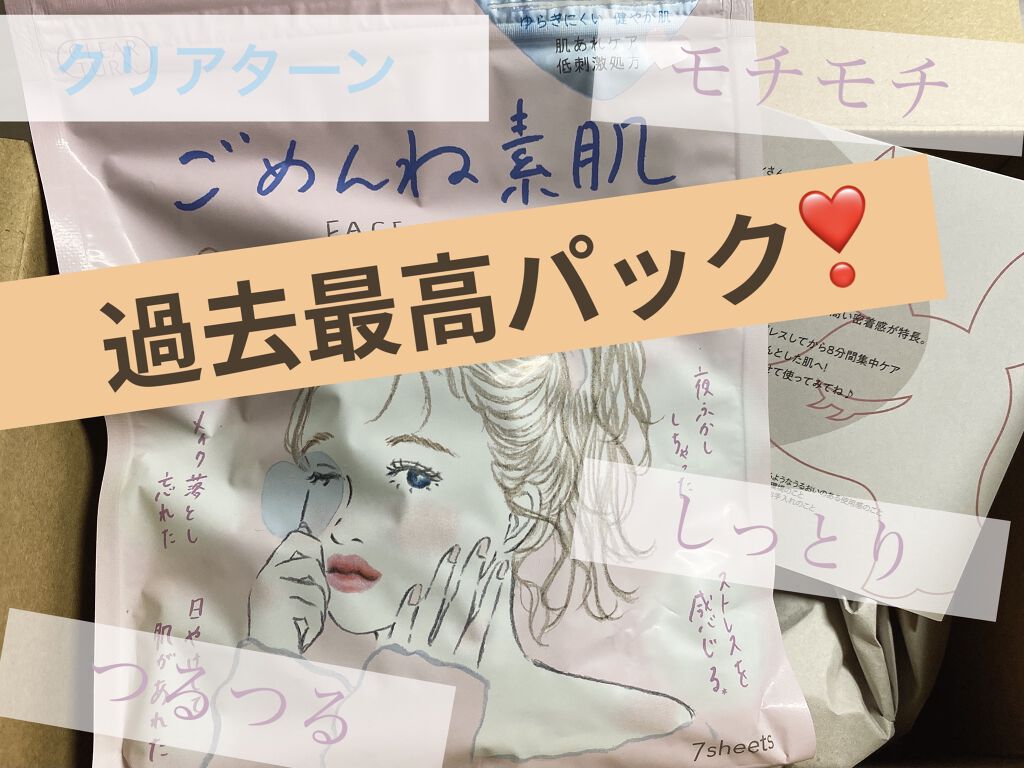 クリアターン
ゆらぎにくい 健やか肌
肌あれケア
低刺激処方
モチモチ
ごめんね素肌
FACE
過去最高パック❣️
い密着感が特長。
レスしてから8分間集中ケア
とした肌へ!
せて使ってみてね♪
夜ふかし
しちゃった
メイク落とし
忘れた
ようなうるおいのある使用感のこと
お手入れのこと
しっとり
ストレスを
感じる。
日や
肌があれた
つるつる
7sheets